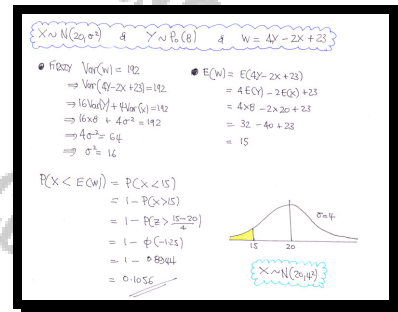 X ~ N(20, σ²) & Y ~ Po(8) & W = 4Y - 2X + 23
• FIRSTLY Var(W) = 192
⇒ Var(4Y - 2X + 23) = 192
⇒ 16Var(Y) + 4Var(X) = 192
⇒ 16×8 + 4σ² = 192
⇒ 4σ² = 64
⇒ σ² = 16
• E(W) = E(4Y - 2X + 23)
= 4E(Y) - 2E(X) + 23
= 4×8 - 2×20 + 23
= 32 - 40 + 23
= 15
P(X < E(W)) = P(X < 15)
= 1 - P(X > 15)
= 1 - P(Z > (15-20)/4)
= 1 - Φ(-1.25)
= 1 - 0.8944
= 0.1056
σ=4
15 20
X ~ N(20, 4²)